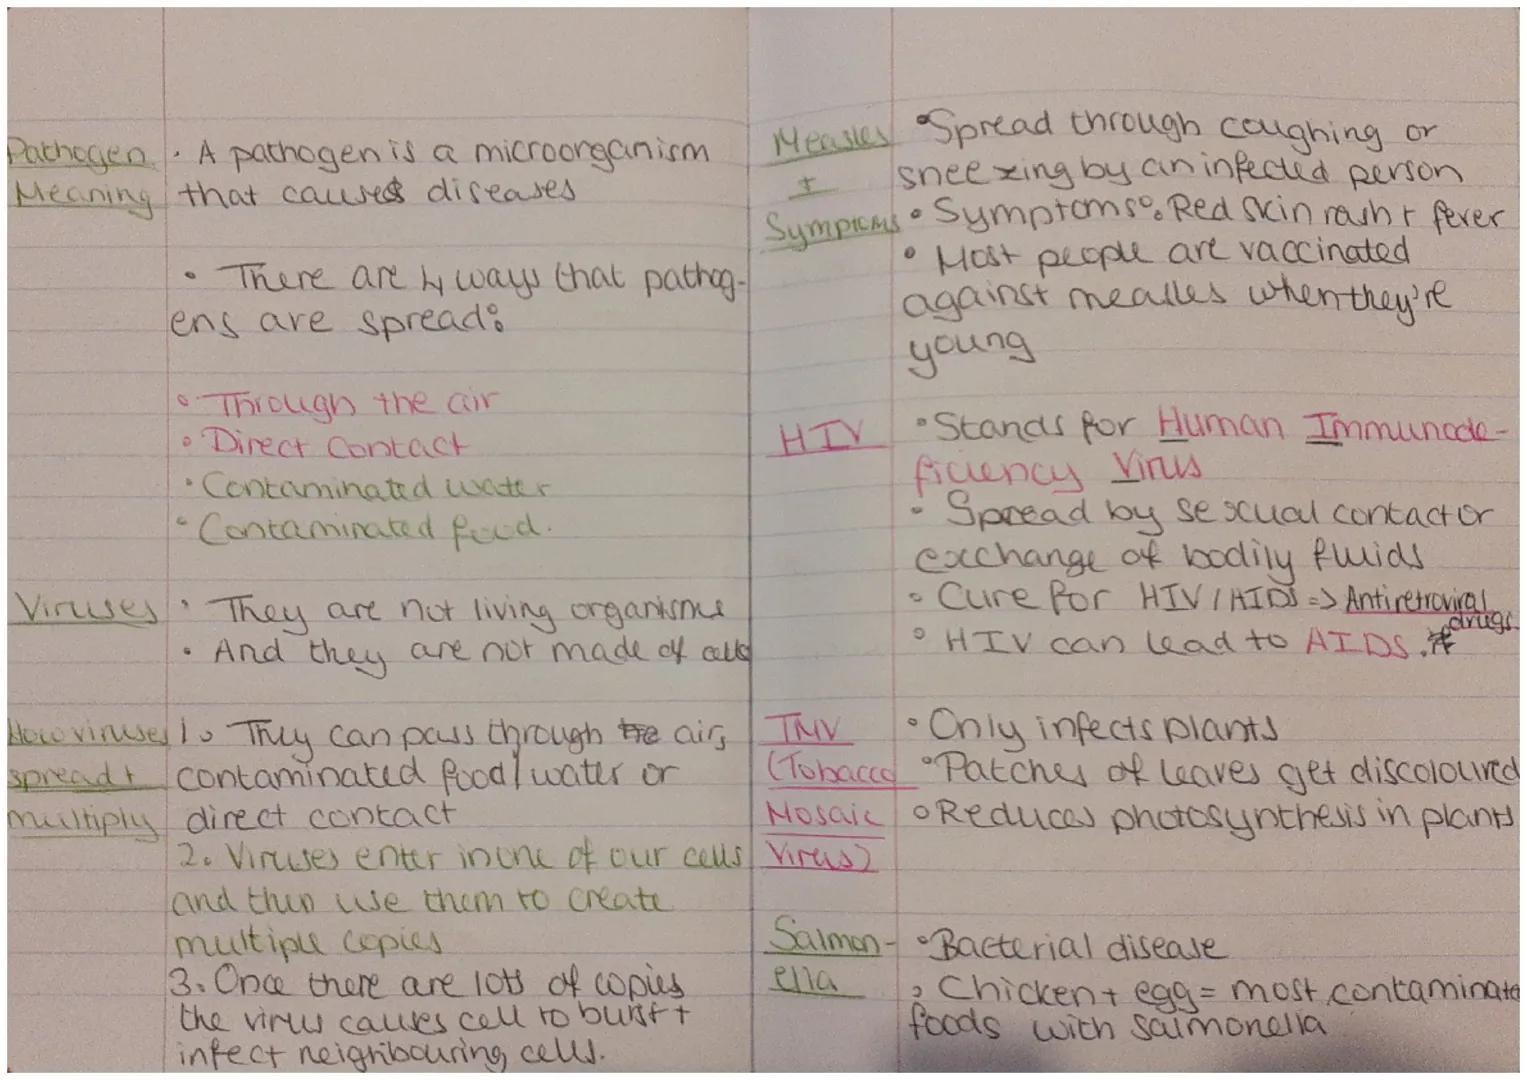 Pathogen
Meaning
• A pathogen is a microorganism
that causes diseases
• There are 4 ways that pathog-
ens are spread:
• Through the air
• Direct Contact
• Contaminated water
• Contaminated food.
Viruses
• They are not living organisms
• And they are not made of cells
How viruses
spread +
multiply
1. They can pass through the air,
contaminated food/water or
direct contact
2. Viruses enter in one of our cells
and then use them to create
multiple copies
3. Once there are lots of copies
the virus causes cell to burst +
infect neighbouring cells.
Measles
+
Symptoms
• Spread through coughing or
sneezing by an infected person
• Symptoms: Red skin rash + fever
• Most people are vaccinated
against mealles when they're
young
HIV
• Stands for Human Immunode-
ficiency Virus
• Spread by sexual contact or
exchange of bodily fluids
• Cure for HIV/AIDS => Antiretroviral
drugs.
• HIV can lead to AIDS.
TMV
(Tobacco
Mosaic
Virus)
• Only infects plants
• Patches of leaves get discoloured
• Reduces photosynthesis in plants
Salmon-
ella
• Bacterial disease
• Chicken + egg = most contaminate
foods with salmonella